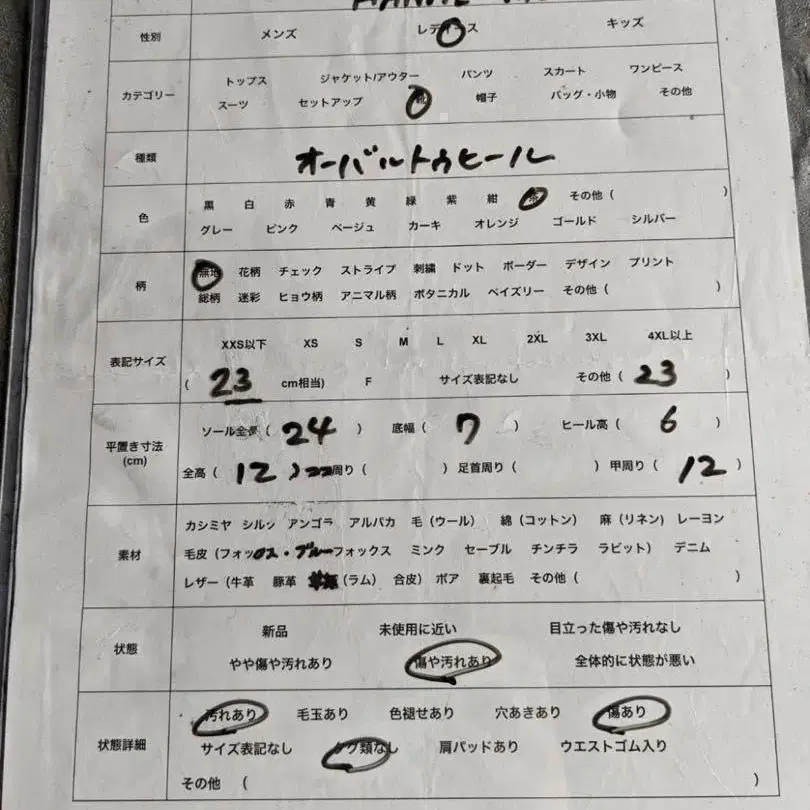 性別 メンズ レディース キッズ
カテゴリー トップス ジャケット/アウター パンツ スカート ワンピース
スーツ セットアップ 靴 帽子 バッグ・小物 その他
種類 オーバルトゥヒール
色 黒 白 赤 青 黄 緑 紫 紺 茶 その他 ( )
グレー ピンク ベージュ カーキ オレンジ ゴールド シルバー
柄 無地 花柄 チェック ストライプ 刺繍 ドット ボーダー デザイン プリント
総柄 迷彩 ヒョウ柄 アニマル柄 ボタニカル ペイズリー その他 ( )
表記サイズ XXS以下 XS S M L XL 2XL 3XL 4XL以上
( 23 cm相当) F サイズ表記なし その他 ( 23 )
平置き寸法 (cm) ソール全長 ( 24 ) 底幅 ( 7 ) ヒール高 ( 6 )
全高 ( 12 ) 周り ( ) 足首周り ( ) 甲周り ( 12 )
素材 カシミヤ シルク アンゴラ アルパカ 毛 (ウール) 綿 (コットン) 麻 (リネン) レーヨン
毛皮 (フォックス・ブルーフォックス ミンク セーブル チンチラ ラビット) デニム
レザー (牛革 豚革 (ラム) 合皮) ボア 裏起毛 その他 ( )
状態 新品 未使用に近い 目立った傷や汚れなし
やや傷や汚れあり 傷や汚れあり 全体的に状態が悪い
状態詳細 汚れあり 毛玉あり 色褪せあり 穴あきあり 傷あり
サイズ表記なし タグ類なし 肩パッドあり ウエストゴム入り
その他 ( )